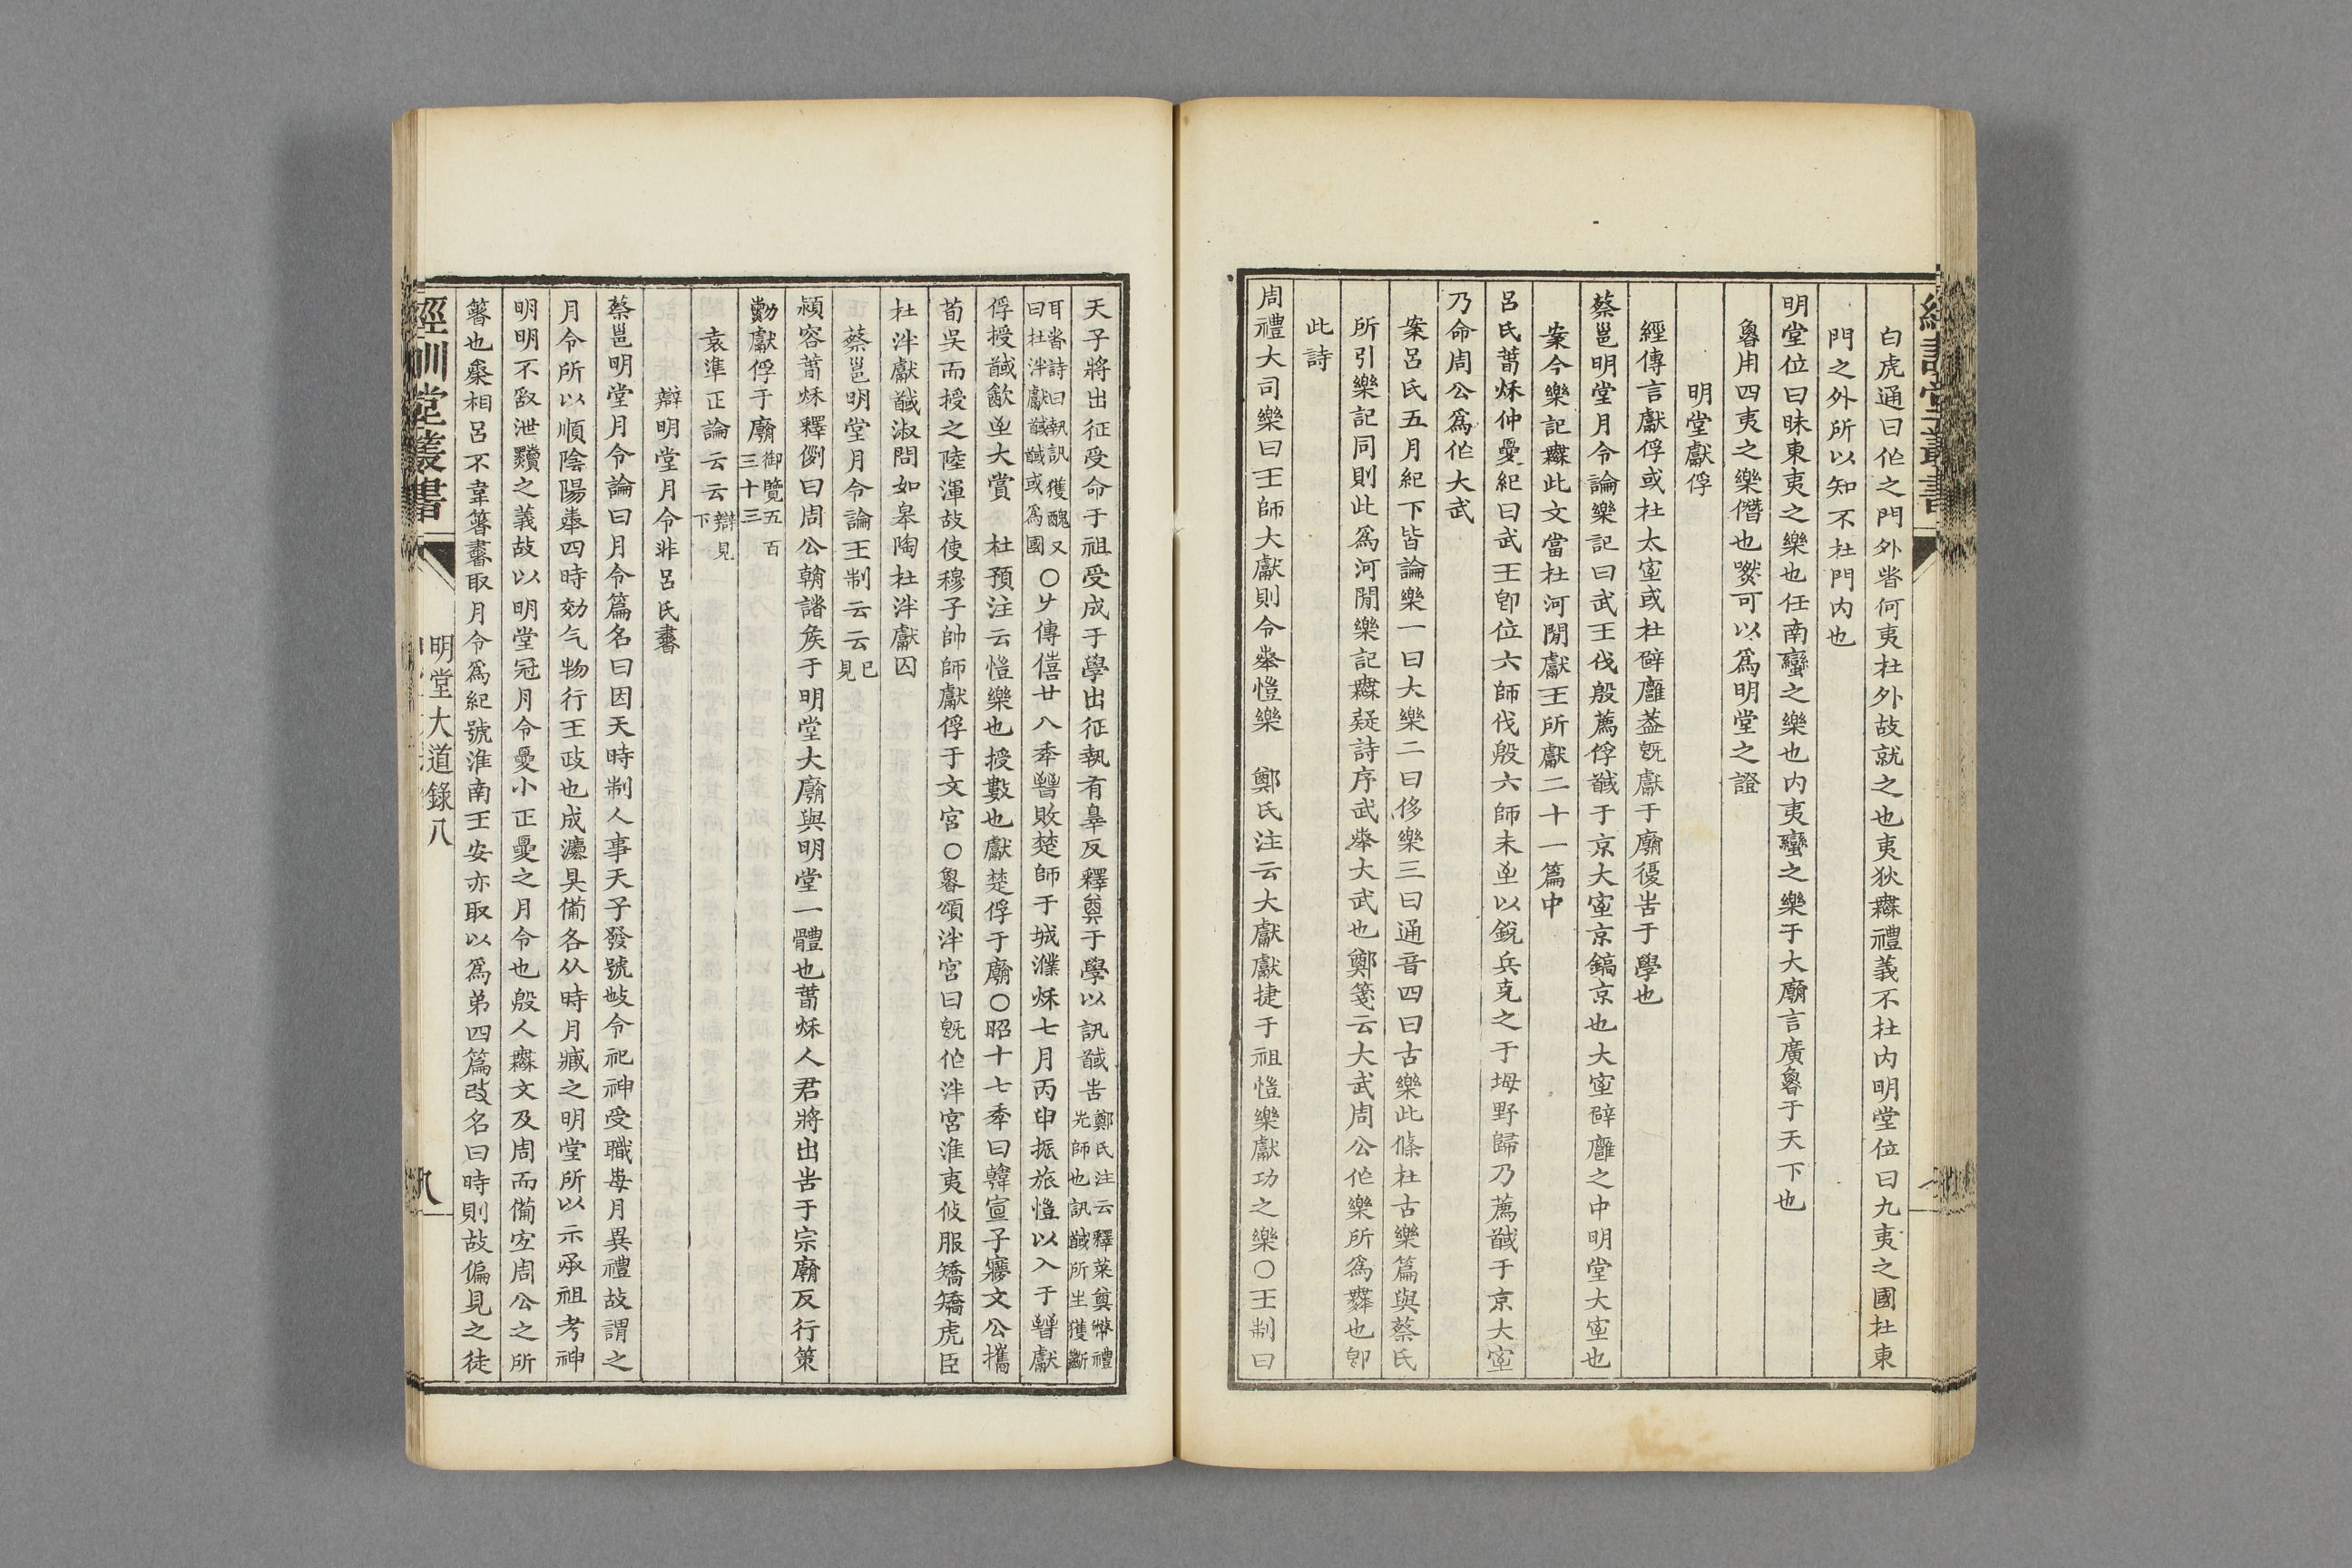 白虎通曰㑅之門外者何夷在外故就之也夷狄無禮義不在内明堂位曰九夷之國在東
門之外所以知不在門内也
明堂位曰昧東夷之樂也任南蠻之樂也内夷蠻之樂于大廟言廣魯于天下也
魯用四夷之樂僭也然可以爲明堂之證
明堂獻俘
經傳言獻俘或在太室或在辟廱葢旣獻于廟復告于學也
蔡邕明堂月令論樂記曰武王伐殷薦俘馘于京大室京鎬京也大室辟廱之中明堂大室也
案今樂記無此文當在河閒獻王所獻二十一篇中
呂氏萅秌仲夏紀曰武王卽位六師伐殷六師未至以銳兵克之于坶野歸乃薦馘于京大室
乃命周公爲作大武
案呂氏五月紀下皆論樂一曰大樂二曰侈樂三曰通音四曰古樂此條在古樂篇與蔡氏
所引樂記同則此爲河閒樂記無疑詩序武奏大武也鄭箋云大武周公作樂所爲舞也卽
此詩
周禮大司樂曰王師大獻則令奏愷樂　鄭氏注云大獻獻捷于祖愷樂獻功之樂○王制曰
天子將出征受命于祖受成于學出征執有辠反釋奠于學以訊馘告鄭氏注云釋菜奠幣禮先師也訊馘所生獲斷
耳者詩曰執訊獲醜又曰在泮獻馘馘或爲國○左傳僖廿八年晉敗楚師于城濮秌七月丙申振旅愷以入于晉獻
俘授馘飮至大賞　杜預注云愷樂也授數也獻楚俘于廟○昭十七年曰韓宣子㝱文公攜
荀吳而授之陸渾故使穆子帥師獻俘于文宮○魯頌泮宮曰旣作泮宮淮夷攸服矯矯虎臣
在泮獻馘淑問如皋陶在泮獻囚
蔡邕明堂月令論王制云云已見
潁容萅秌釋例曰周公朝諸矦于明堂大廟與明堂一體也萅秌人君將出告于宗廟反行策
勳獻俘于廟御覽五百三十三
袁準正論云云辯見下
辯明堂月令非呂氏書
蔡邕明堂月令論曰月令篇名曰因天時制人事天子發號施令祀神受職每月異禮故謂之
月令所以順陰陽奉四時效气物行王政也成灋具備各从時月臧之明堂所以示承祖考神
明明不敢泄黷之義故以明堂冠月令夏小正夏之月令也殷人無文及周而備宜周公之所
箸也秦相呂不韋箸書取月令爲紀號淮南王安亦取以爲弟四篇改名曰時則故偏見之徒
經訓堂叢書
明堂大道錄八
九